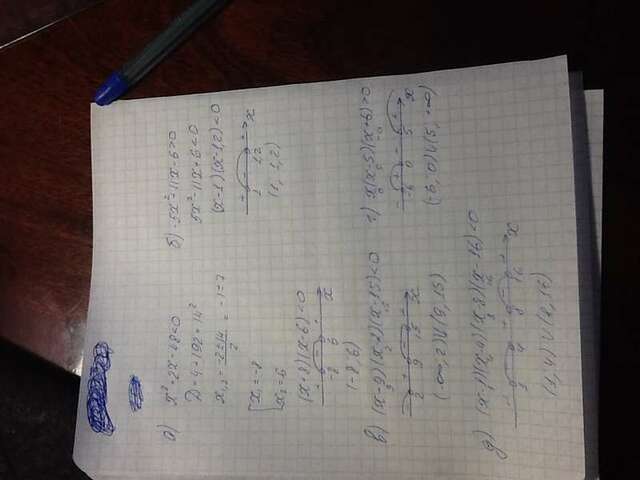 а) x²+2x-48<0
D=4+192=14²
x₁,₂=(-2±14)/2=-1±7
[x₁=-8
x₂=6
(x+8)(x-6)<0
+ - +
-8 6 x
(-8,6)
б) -5x²+11x-6>0
5x²-11x+6<0
(x-1)(x-1,2)<0
- +
1 1,2 x
(1, 1,2)
в) (x-9)(x-2)(x-15)<0
9 2 15
- + - +
2 9 15 x
(-∞,2)∪(9,15)
г) x(x-5)(x+6)>0
0 5 -6
- + - +
-6 0 5 x
(-6,0)∪(5,+∞)
д) (x-1)(x-4)(x-8)(x-16)<0
1 4 8 16
+ - + - +
1 4 8 16 x
(1,4)∪(8,16)